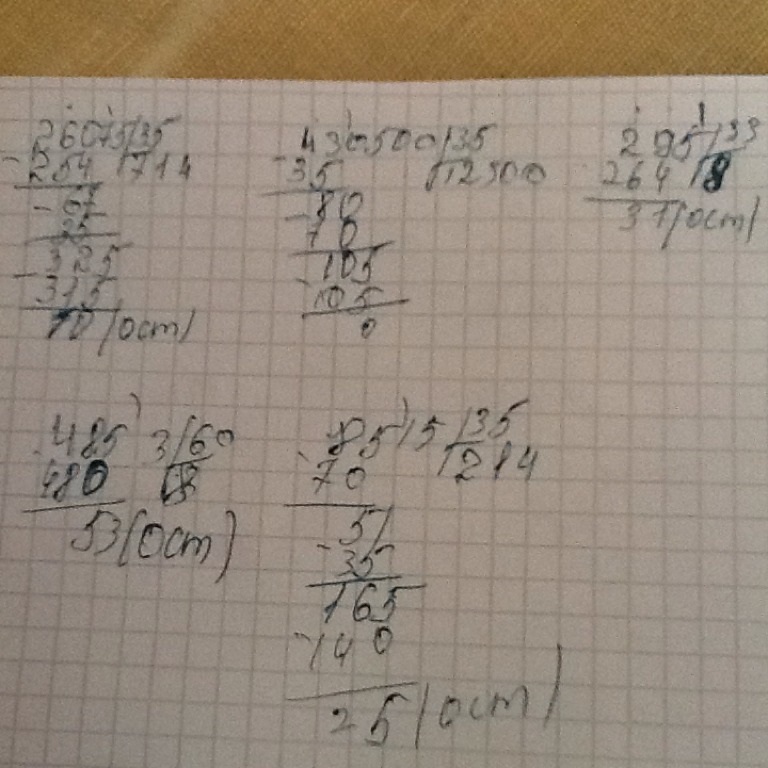 26075/35
- 254 714
- 67
35
- 325
315
10 (ост)
430500/35
- 35 12300
- 80
70
- 105
105
0
295/33
264 8
31 (ост)
4853/60
- 480 8
53 (ост)
8515/35
- 70 214
51
- 35
165
- 140
25 (ост)